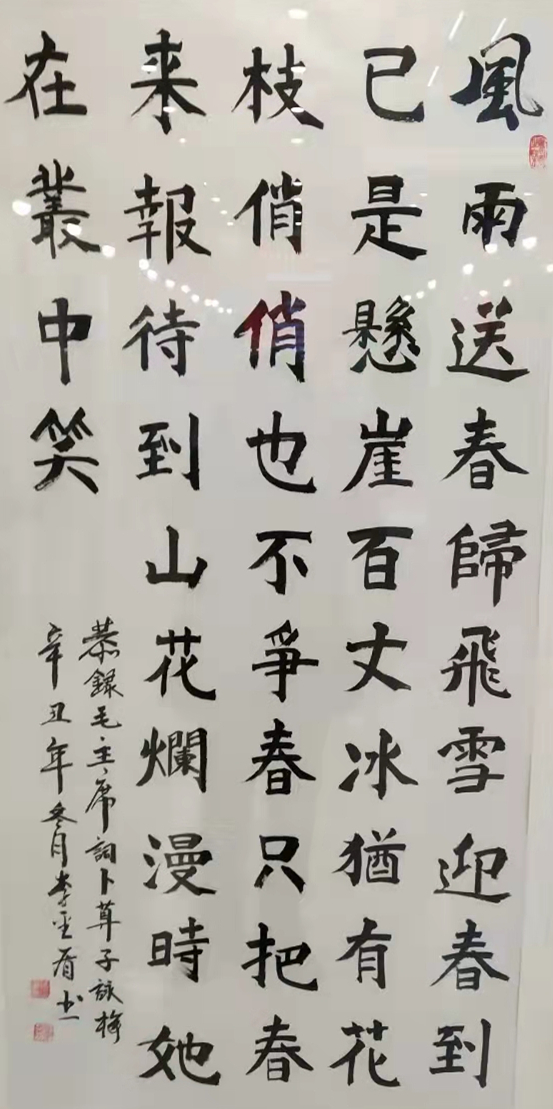 風雨送春歸飛雪迎春到
已是懸崖百丈冰猶有花
枝俏俏也不爭春只把春
来報待到山花爛漫時她
在叢中笑
恭錄毛主席詞卜算子詠梅
辛丑年冬月李书